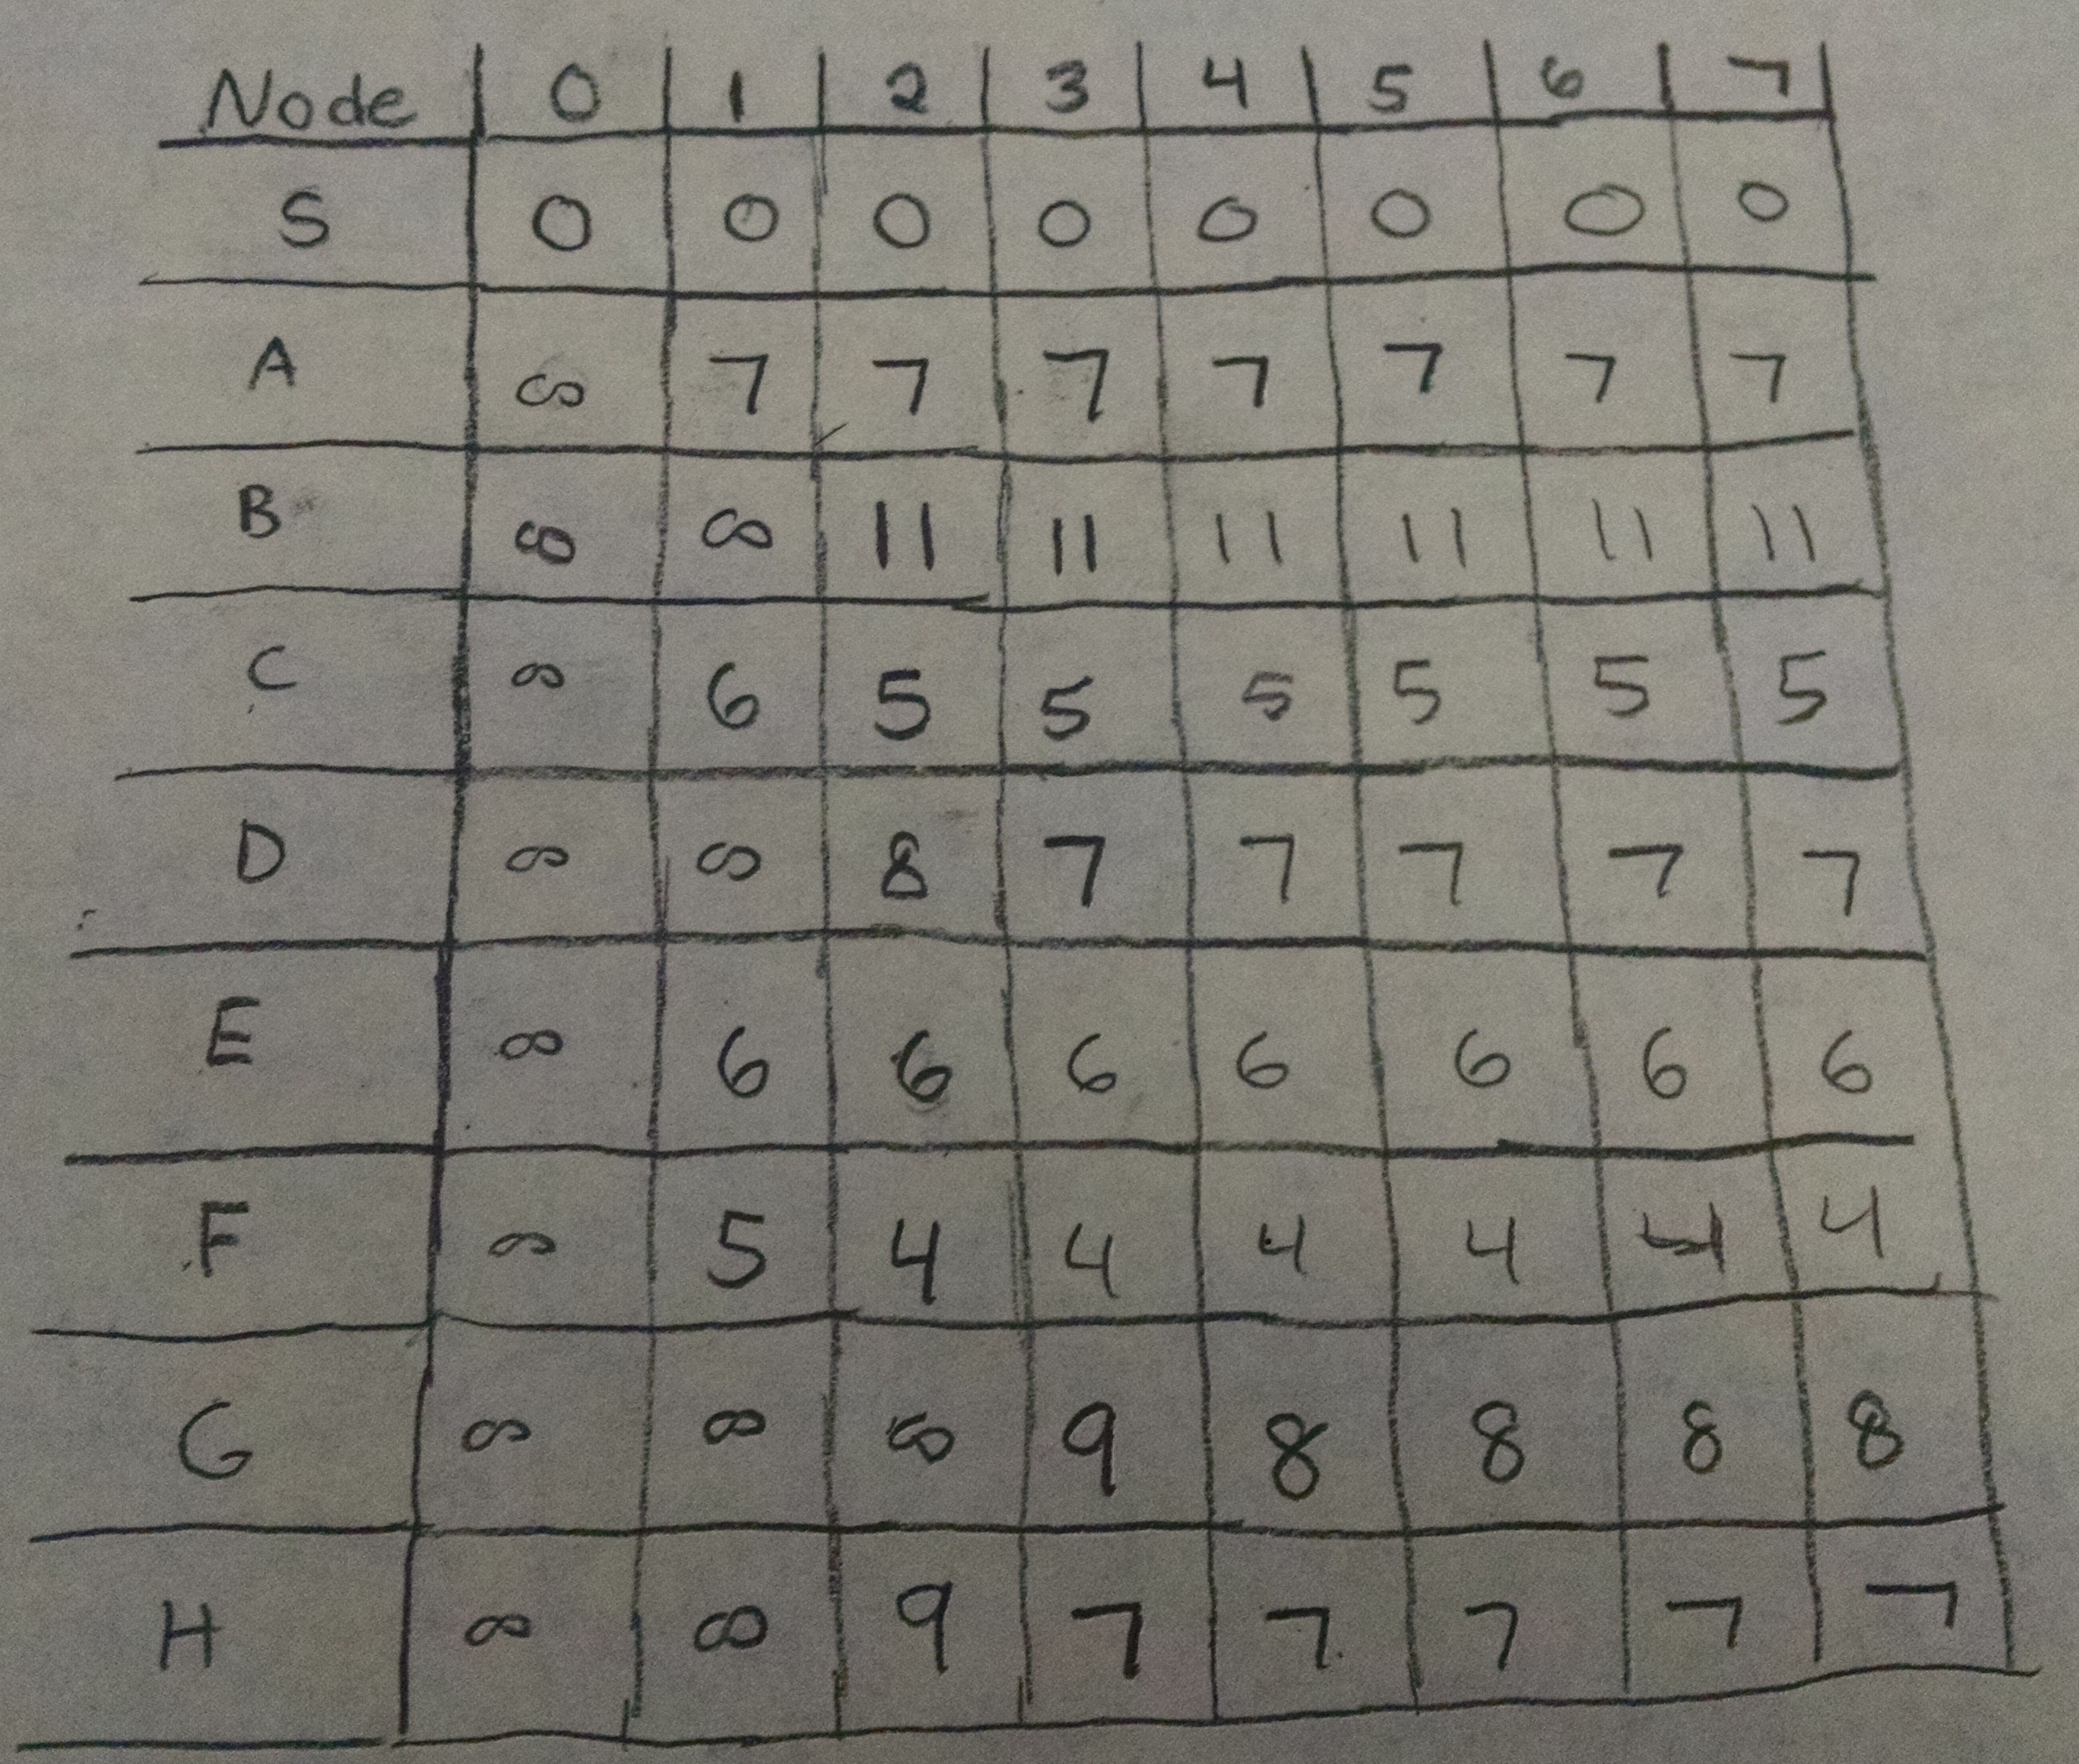 Node 0 1 2 3 4 5 6 7
S 0 0 0 0 0 0 0 0
A ∞ 7 7 7 7 7 7 7
B ∞ ∞ 11 11 11 11 11 11
C ∞ 6 5 5 5 5 5 5
D ∞ ∞ 8 7 7 7 7 7
E ∞ 6 6 6 6 6 6 6
F ∞ 5 4 4 4 4 4 4
G ∞ ∞ ∞ 9 8 8 8 8
H ∞ ∞ 9 7 7 7 7 7